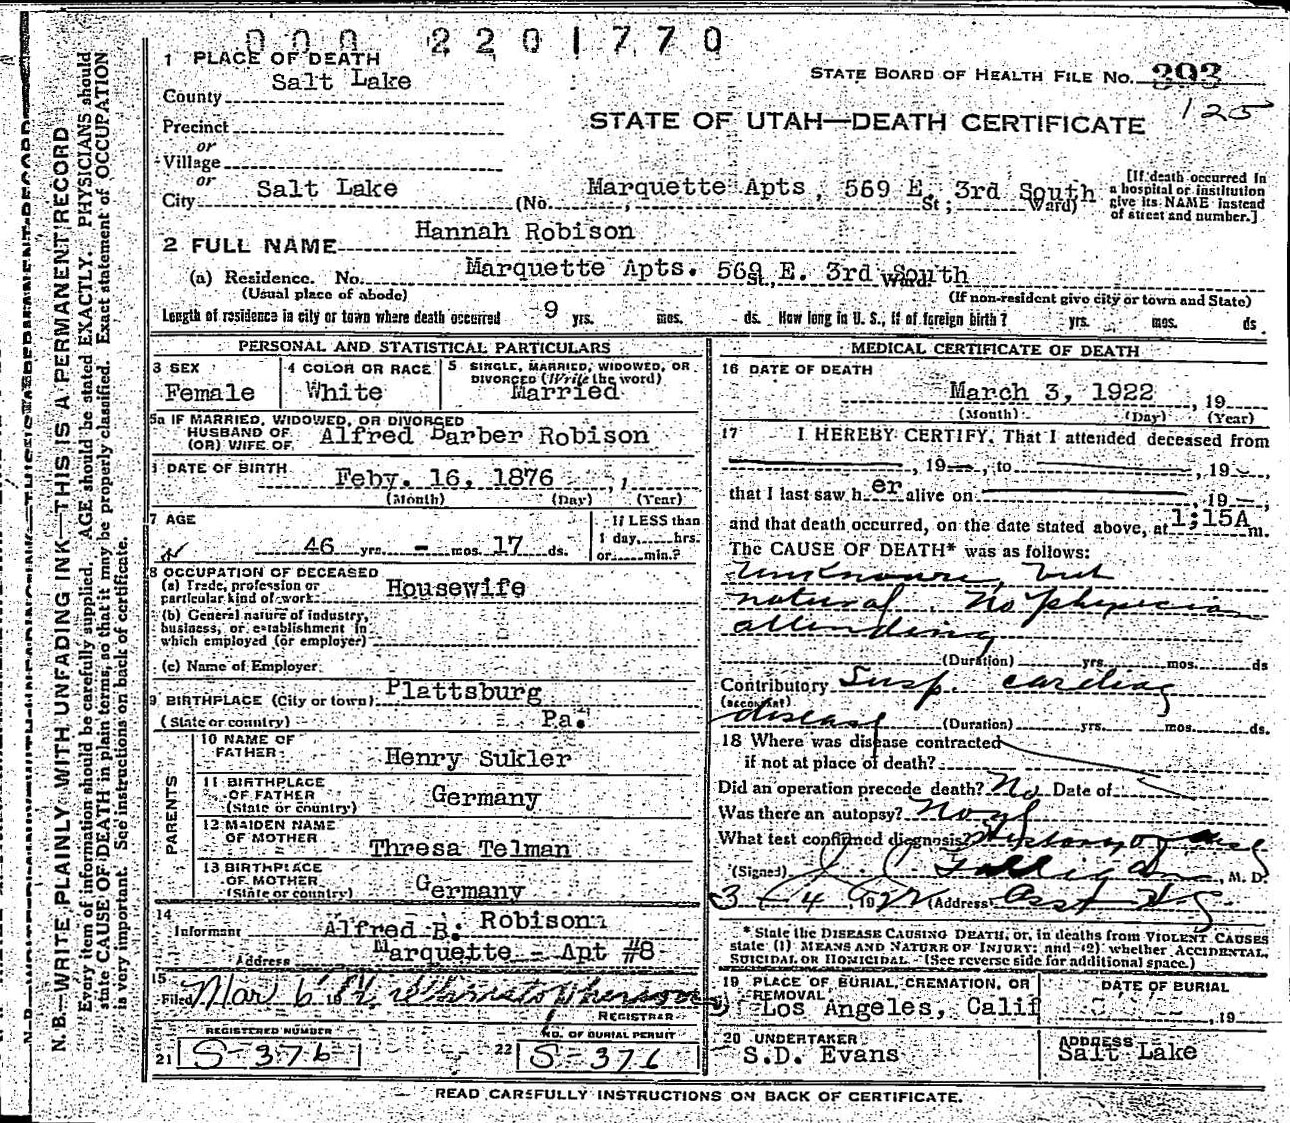 000 2201770
1 PLACE OF DEATH
STATE BOARD OF HEALTH FILE NO. 393
125
County Salt Lake
STATE OF UTAH—DEATH CERTIFICATE
Precinct
or
Village
or
City Salt Lake (No. Marquette Apts, 569 E. 3rd South St; Ward)
[If death occurred in
a hospital or institution
give its NAME instead
of street and number.]
2 FULL NAME Hannah Robison
(a) Residence. No. Marquette Apts. 569 E. 3rd South St., Ward.
(Usual place of abode) (If non-resident give city or town and State)
Length of residence in city or town where death occurred 9 yrs. mos. ds. How long in U. S., if of foreign birth? yrs. mos. ds.
PERSONAL AND STATISTICAL PARTICULARS
3 SEX Female
4 COLOR OR RACE White
5 SINGLE, MARRIED, WIDOWED, OR
DIVORCED (Write the word)
Married
5a IF MARRIED, WIDOWED, OR DIVORCED
HUSBAND OF
(OR) WIFE OF Alfred Barber Robison
6 DATE OF BIRTH Feby. 16, 1876
(Month) (Day) (Year)
7 AGE 46 yrs. - mos. 17 ds.
If LESS than
1 day, hrs.
or min.?
8 OCCUPATION OF DECEASED
(a) Trade, profession or
particular kind of work Housewife
(b) General nature of industry,
business, or establishment in
which employed (or employer)
(c) Name of Employer
9 BIRTHPLACE (City or town) Plattsburg
(State or country) Pa.
PARENTS
10 NAME OF
FATHER Henry Sukler
11 BIRTHPLACE
OF FATHER
(State or country) Germany
12 MAIDEN NAME
OF MOTHER Thresa Telman
13 BIRTHPLACE
OF MOTHER
(State or country) Germany
14
Informant Alfred B. Robison
Address Marquette - Apt #8
15
Filed Mar 6 19
REGISTRAR
REGISTERED NUMBER
21 S-376
NO. OF BURIAL PERMIT
22 S-376
MEDICAL CERTIFICATE OF DEATH
16 DATE OF DEATH
March 3, 1922, 19
(Month) (Day) (Year)
17 I HEREBY CERTIFY, That I attended deceased from
, 19 , to , 19
that I last saw h er alive on , 19
and that death occurred, on the date stated above, at 1;15A m.
The CAUSE OF DEATH* was as follows:
Unknown, but
natural. No physician
attending
(Duration) yrs. mos. ds
Contributory Susp. cardiac
(SECONDARY)
disease (Duration) yrs. mos. ds.
18 Where was disease contracted
if not at place of death?
Did an operation precede death? No Date of
Was there an autopsy? No
What test confirmed diagnosis? History of
(Signed) , M. D.
3/4, 1922 (Address) Asst
* State the DISEASE CAUSING DEATH, or, in deaths from VIOLENT CAUSES
state (1) MEANS AND NATURE OF INJURY; and (2) whether ACCIDENTAL,
SUICIDAL OR HOMICIDAL. (See reverse side for additional space.)
19 PLACE OF BURIAL, CREMATION, OR
REMOVAL
Los Angeles, Calif
DATE OF BURIAL
, 19
20 UNDERTAKER
S.D. Evans
ADDRESS
Salt Lake
READ CAREFULLY INSTRUCTIONS ON BACK OF CERTIFICATE.
N. B.—WRITE PLAINLY WITH UNFADING INK—THIS IS A PERMANENT RECORD
Every item of information should be carefully supplied. AGE should be stated EXACTLY. PHYSICIANS should
state CAUSE OF DEATH in plain terms, so that it may be properly classified. Exact statement of OCCUPATION
is very important. See instructions on back of certificate.